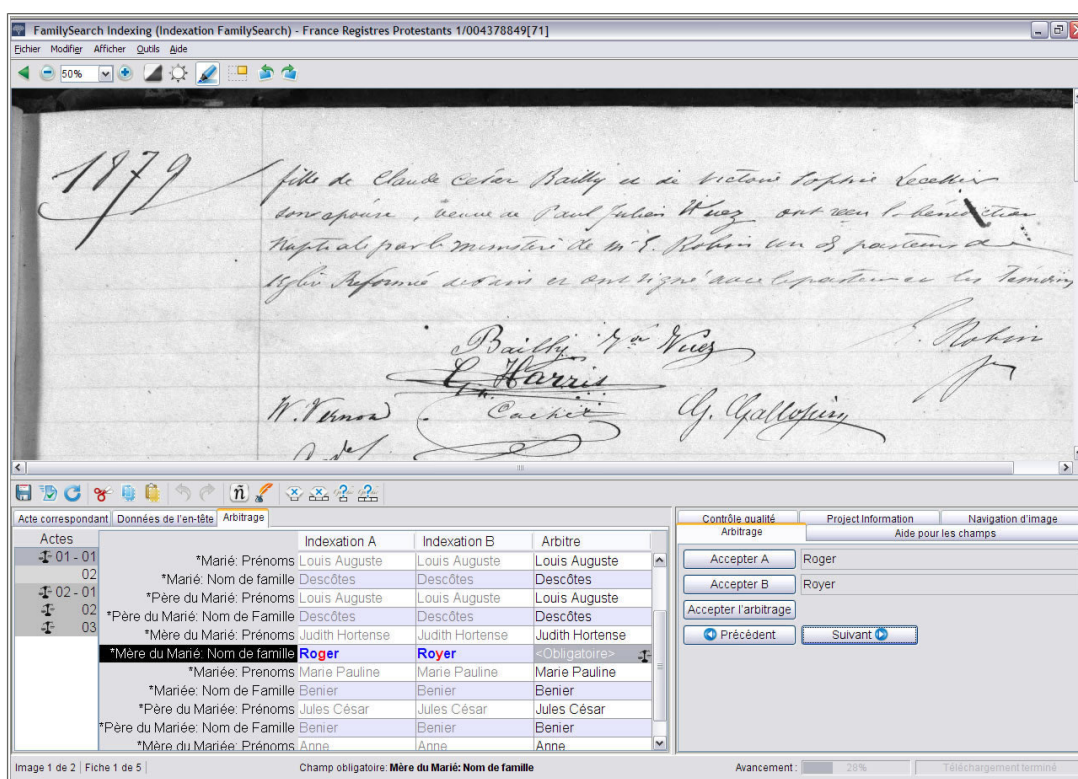 FamilySearch Indexing (Indexation FamilySearch) - France Registres Protestants 1/004378849[71]
Fichier Modifier Afficher Outils Aide
50%
1879
fille de Claude César Bailly et de Victoire Sophie Lecellier
son épouse, veuve de Paul Julien Wuez ont reçu la bénédiction
nuptiale par le ministère de Mr E. Robin un des pasteurs de
Eglise Réformée de Paris et ont signé avec le pasteur et les témoins
Bailly Vve Wuez
E. Robin
G. Harris
W. Vernon Cachet G. Gallopin
Acte correspondant Données de l'en-tête Arbitrage
Actes
01 - 01
02
02 - 01
02
03
Indexation A Indexation B Arbitre
*Marié: Prénoms Louis Auguste Louis Auguste Louis Auguste
*Marié: Nom de famille Descôtes Descôtes Descôtes
*Père du Marié: Prénoms Louis Auguste Louis Auguste Louis Auguste
*Père du Marié: Nom de Famille Descôtes Descôtes Descôtes
*Mère du Marié: Prénoms Judith Hortense Judith Hortense Judith Hortense
*Mère du Marié: Nom de famille Roger Royer <Obligatoire>
*Mariée: Prenoms Marie Pauline Marie Pauline Marie Pauline
*Mariée: Nom de Famille Benier Benier Benier
*Père du Mariée: Prénoms Jules César Jules César Jules César
*Père du Mariée: Nom de Famille Benier Benier Benier
*Mère du Mariée: Prénoms Anne Anne Anne
Contrôle qualité Project Information Navigation d'image
Arbitrage Aide pour les champs
Accepter A Roger
Accepter B Royer
Accepter l'arbitrage
Précédent Suivant
Image 1 de 2 Fiche 1 de 5 Champ obligatoire: Mère du Marié: Nom de famille Avancement: 28% Téléchargement terminé